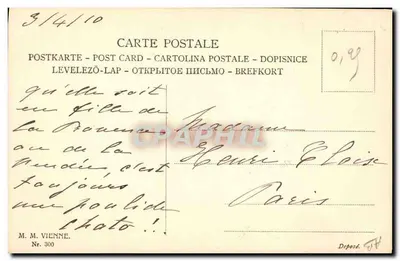 3/4/10
CARTE POSTALE
POSTKARTE - POST CARD - CARTOLINA POSTALE - DOPISNICE
LEVELEZŐ-LAP - ОТКРЫТОЕ ПИСЬМО - BREFKORT
0,95
qu'elle soit
en fille de
la Provence
ou de la
Vendée, c'est
toujours
une
chato !!.
Madame
Henri Cloise
Paris
CPAPHIL
M. M. VIENNE.
Nr. 300
Depond.